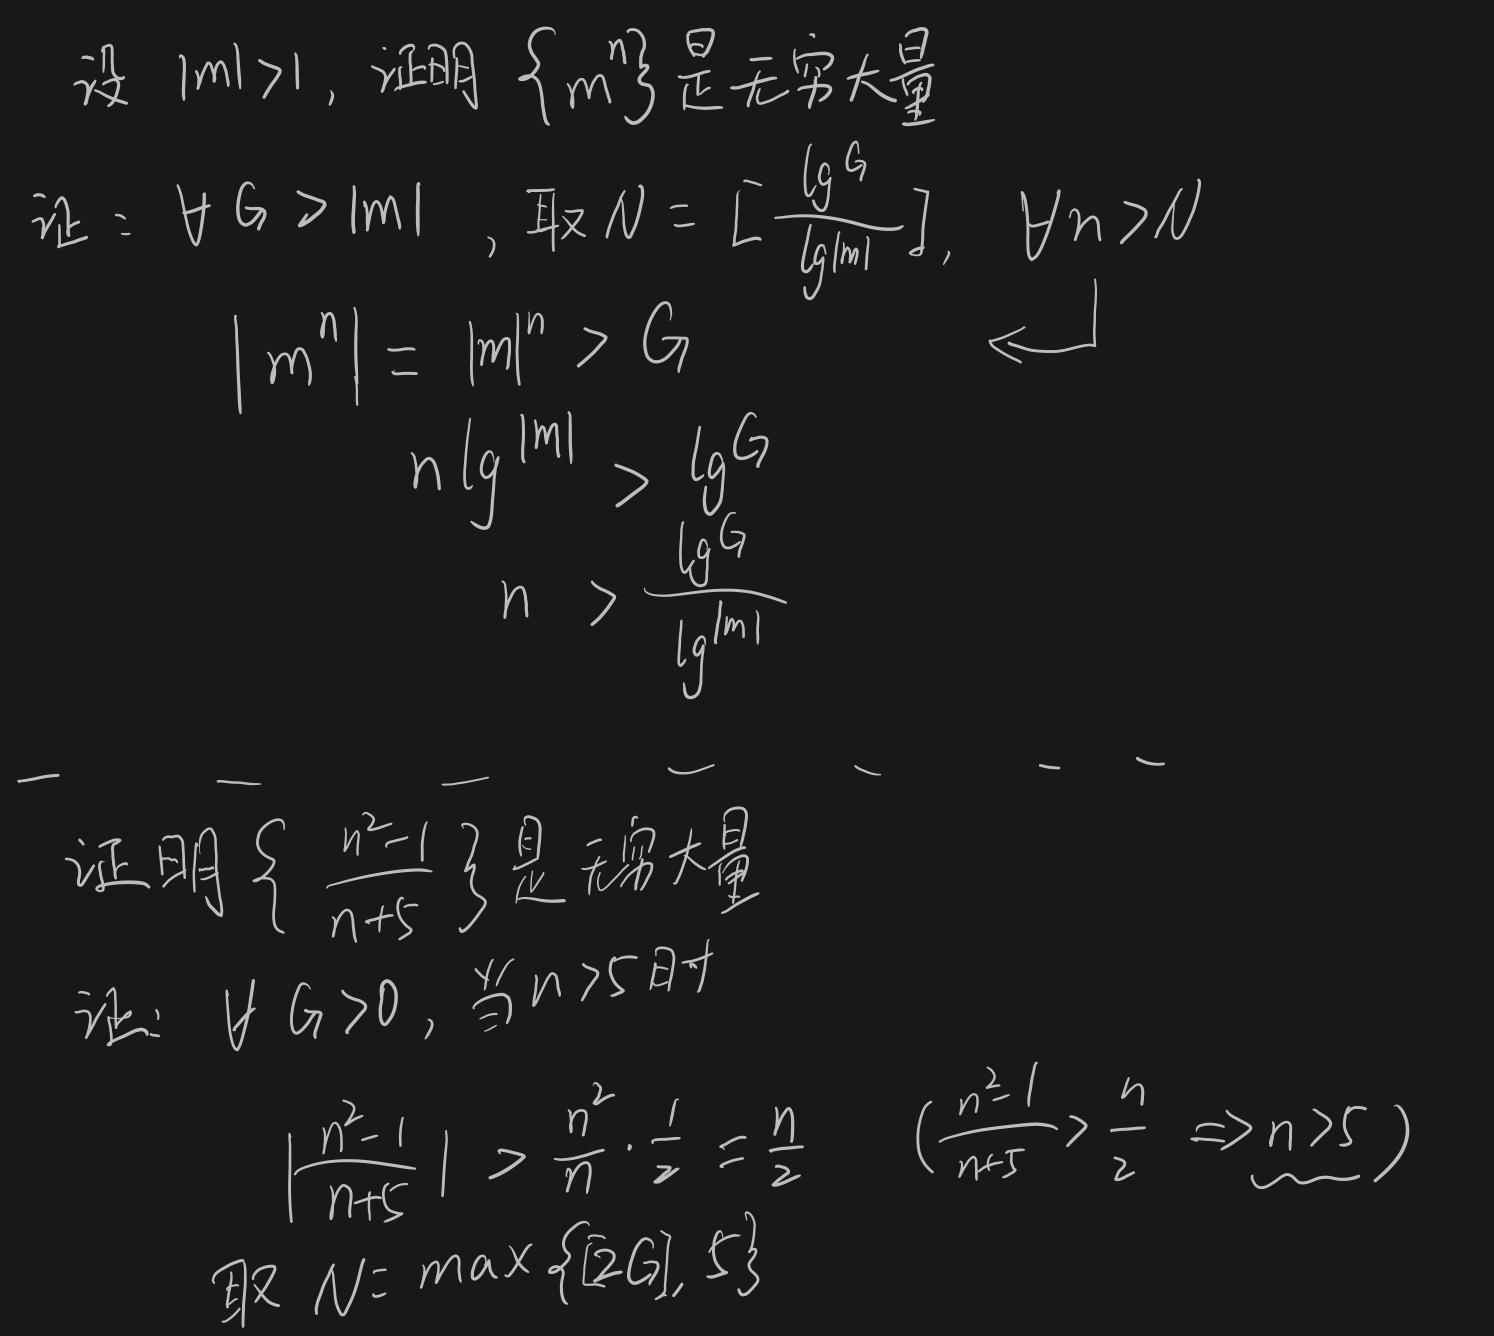 设 |m|>1, 证明 {m^n} 是无穷大量
证: ∀G>|m|, 取N=[lgG/lg|m|], ∀n>N
|m^n| = |m|^n > G
n lg|m| > lgG
n > lgG/lg|m|
证明{(n²-1)/(n+5)}是无穷大量
证: ∀G>0, 当n>5时
|(n²-1)/(n+5)| > n²/n · 1/2 = n/2 ((n²-1)/(n+5) > n/2 ⇒ n>5)
取 N= max{[2G], 5}